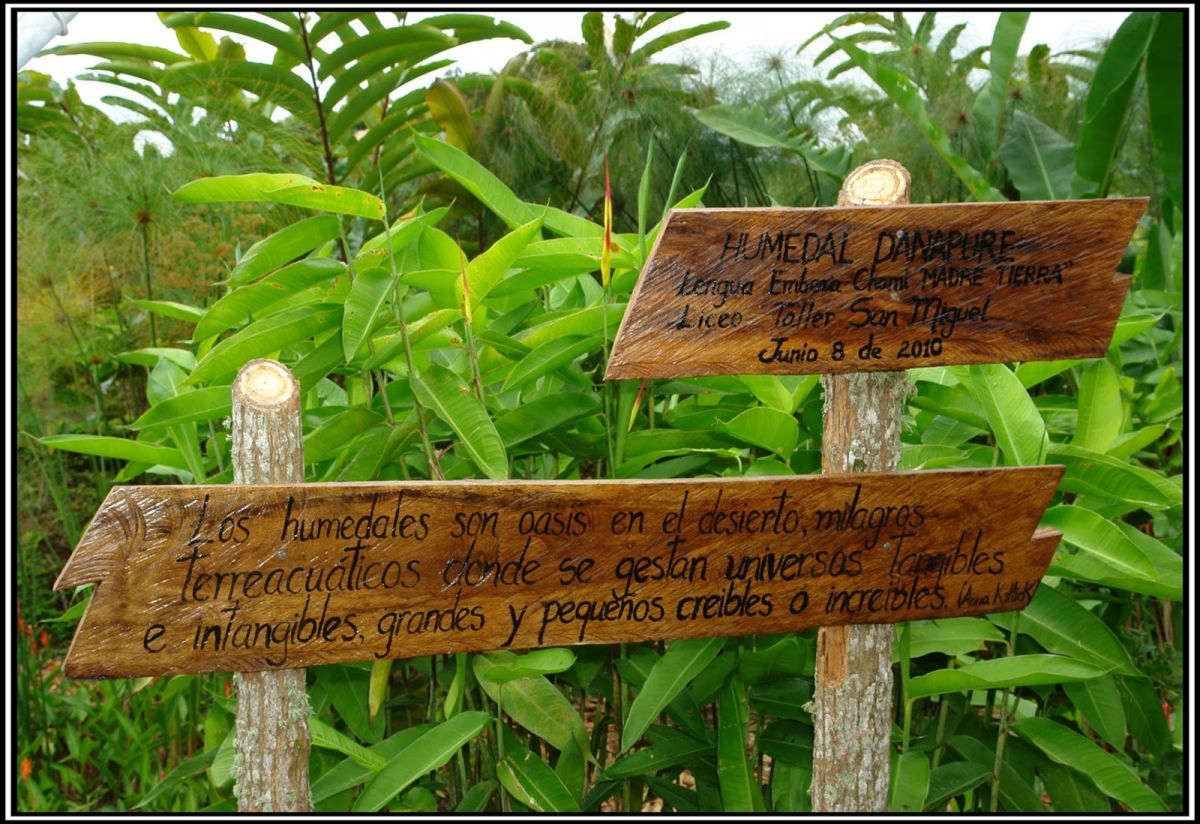 HUMEDAL DANAPURE
"Lengua Embera Chami "MADRE TIERRA"
Liceo Taller San Miguel
Junio 8 de 2010
Los humedales son oasis en el desierto, milagros
terreacuáticos donde se gestan universos tangibles
e intangibles, grandes y pequeños creibles o increibles. (Anna